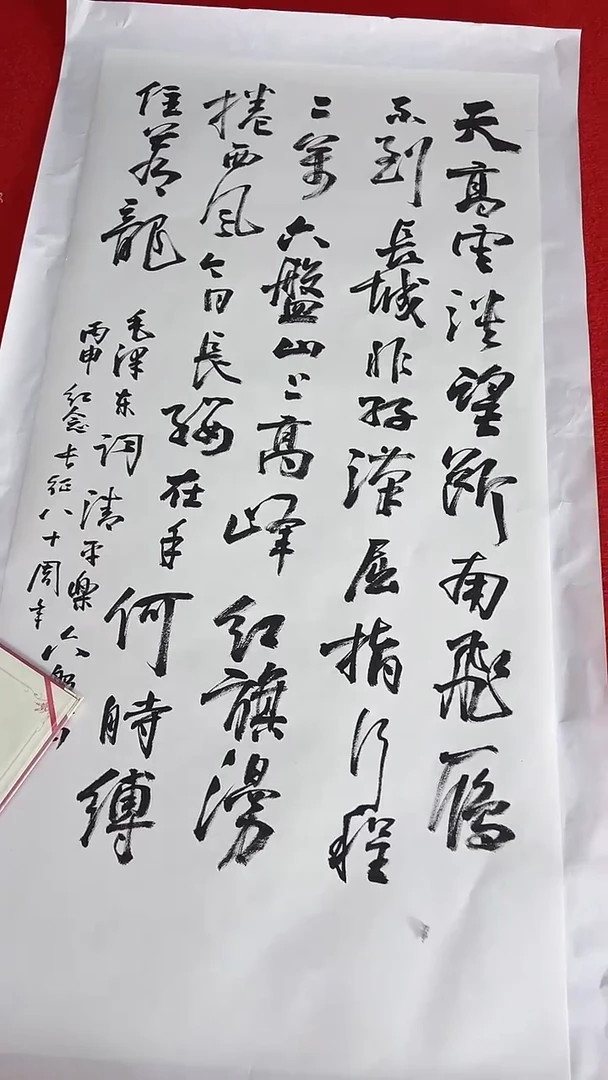 天高雲淡望断南飛雁
不到長城非好漢屈指行程
二萬六盤山上高峰紅旗漫
捲西風今日長纓在手何時縛
住蒼龍
毛泽东词清平樂六
丙申纪念长征八十周年